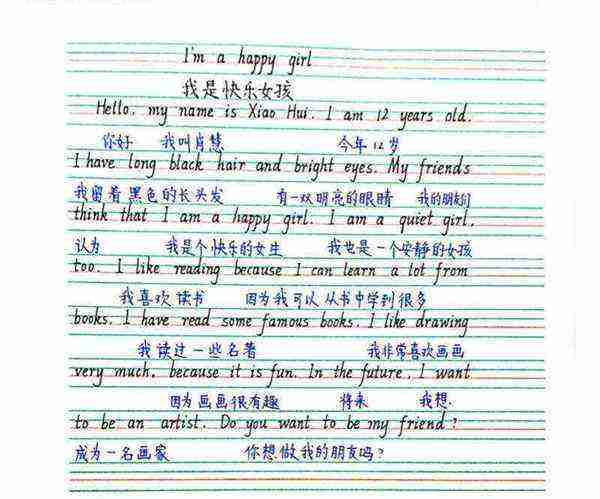 I'm a happy girl
我是快乐女孩
Hello, my name is Xiao Hui. I am 12 years old.
你好 我叫肖慧 今年12岁
I have long black hair and bright eyes. My friends
我留着黑色的长头发 有一双明亮的眼睛 我的朋友们
think that I am a happy girl. I am a quiet girl,
认为 我是个快乐的女生 我也是一个安静的女孩
too. I like reading because I can learn a lot from
我喜欢读书 因为我可以从书中学到很多
books. I have read some famous books. I like drawing
我读过一些名著 我非常喜欢画画
very much, because it is fun. In the future, I want
因为画画很有趣 将来 我想.
to be an artist. Do you want to be my friend?
成为一名画家 你想做我的朋友吗?